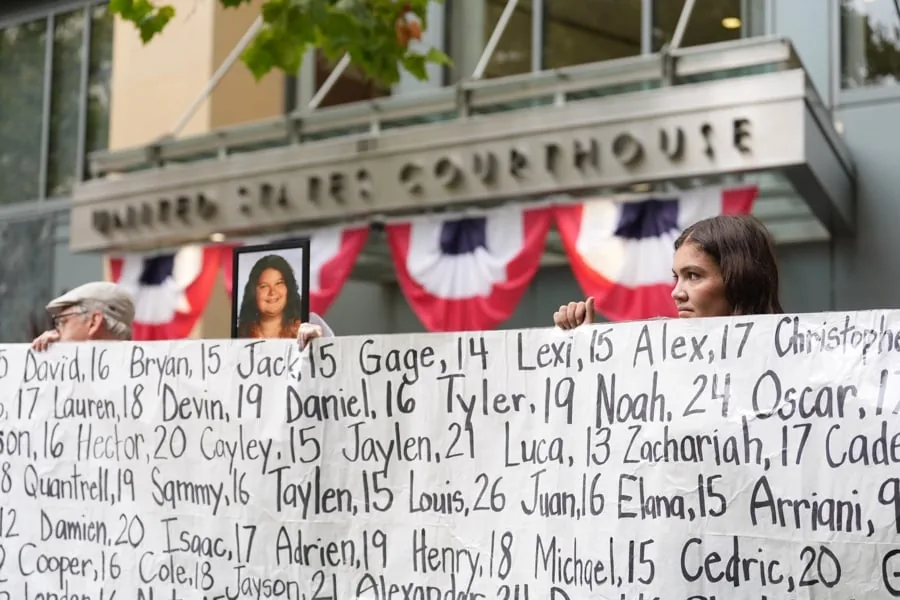 UNITED STATES COURTHOUSE
5 David,16 Bryan,15 Jack,15 Gage,14 Lexi,15 Alex,17 Christophe
17 Lauren,18 Devin,19 Daniel,16 Tyler,19 Noah,24 Oscar,17
son,16 Hector,20 Cayley,15 Jaylen,21 Luca,13 Zachariah,17 Cade
8 Quantrell,19 Sammy,16 Taylen,15 Louis,26 Juan,16 Elana,15 Arriani,9
12 Damien,20 Isaac,17 Adrien,19 Henry,18 Michael,15 Cedric,20
2 Cooper,16 Cole,18 Jayson,21 Alexander